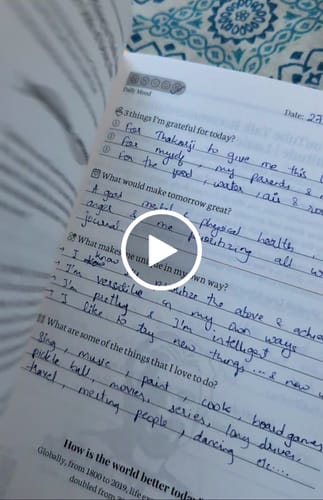 Daily Mood
Date: 27
3 things I'm grateful for today?
① For Thakorji to give me this
② For myself, my parents &
③ For the food, water, air &
What would make tomorrow great?
A good mental & physical health,
anger & me prioritizing all
journal
What makes me unique in my own way?
I know to prioritize the above &
I'm versatile in my own ways
I'm pretty & I'm intelligent
I like to try new things ... & new
What are some of the things that I love to do?
Sing, music, paint, cook, board games
pickle ball, movies, series, long drives,
travel, meeting people, dancing etc....
How is the world better today
Globally, from 1800 to 2019, life
doubled from